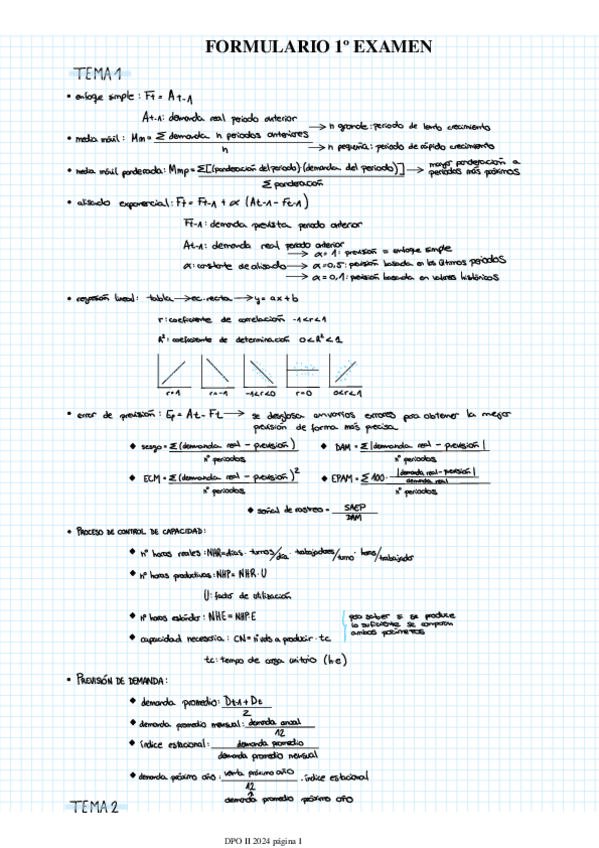 FORMULARIO 1º EXAMEN
TEMA 1
• enfoque simple: Ft = At-1
At-1: demanda real periodo anterior
• media móvil: Mm = Σ demanda n periodos anteriores / n
→ n grande: periodo de lento crecimiento
→ n pequeña: periodo de rápido crecimiento
• media móvil ponderada: Mmp = Σ[(ponderación del periodo)·(demanda del periodo)] / Σ ponderación → mayor ponderación a periodos más próximos
• alisado exponencial: Ft = Ft-1 + α (At-1 - Ft-1)
Ft-1: demanda prevista periodo anterior
At-1: demanda real periodo anterior
α: constante de alisado → α = 1: previsión = enfoque simple
→ α = 0,5: previsión basada en los últimos periodos
→ α = 0,1: previsión basada en valores históricos
• regresión lineal: tabla → ec. recta → y = ax + b
r: coeficiente de correlación -1<r<1
R²: coeficiente de determinación 0<R²<1
r=1 r=-1 -1<r<0 r=0 0<r<1
• error de previsión: Et = At - Ft → se desglosa en varios errores para obtener la mejor
previsión de forma más precisa
♦ sesgo = Σ(demanda real - previsión) / nº periodos
♦ DAM = Σ|demanda real - previsión| / nº periodos
♦ ECM = Σ(demanda real - previsión)² / nº periodos
♦ EPAM = Σ 100 · |demanda real - previsión| / demanda real / nº periodos
♦ señal de rastreo = SAEP / DAM
• PROCESO DE CONTROL DE CAPACIDAD:
♦ nº horas reales: NHR = días · turnos/día · trabajadores/turno · horas/trabajador
♦ nº horas productivas: NHP = NHR · U
U: factor de utilización
♦ nº horas estándar: NHE = NHP·E
♦ capacidad necesaria: CN = nº uds a producir · tc
para saber si se produce
lo suficiente se comparan
ambos parámetros
tc: tiempo de carga unitario (he)
• PREVISIÓN DE DEMANDA:
♦ demanda promedio: Dt-1 + Dt / 2
♦ demanda promedio mensual: demanda anual / 12
♦ índice estacional: demanda promedio / demanda promedio mensual
♦ demanda próximo año: venta próximo año / 12 · índice estacional
demanda promedio próximo año
TEMA 2
DPO II 2024 página 1